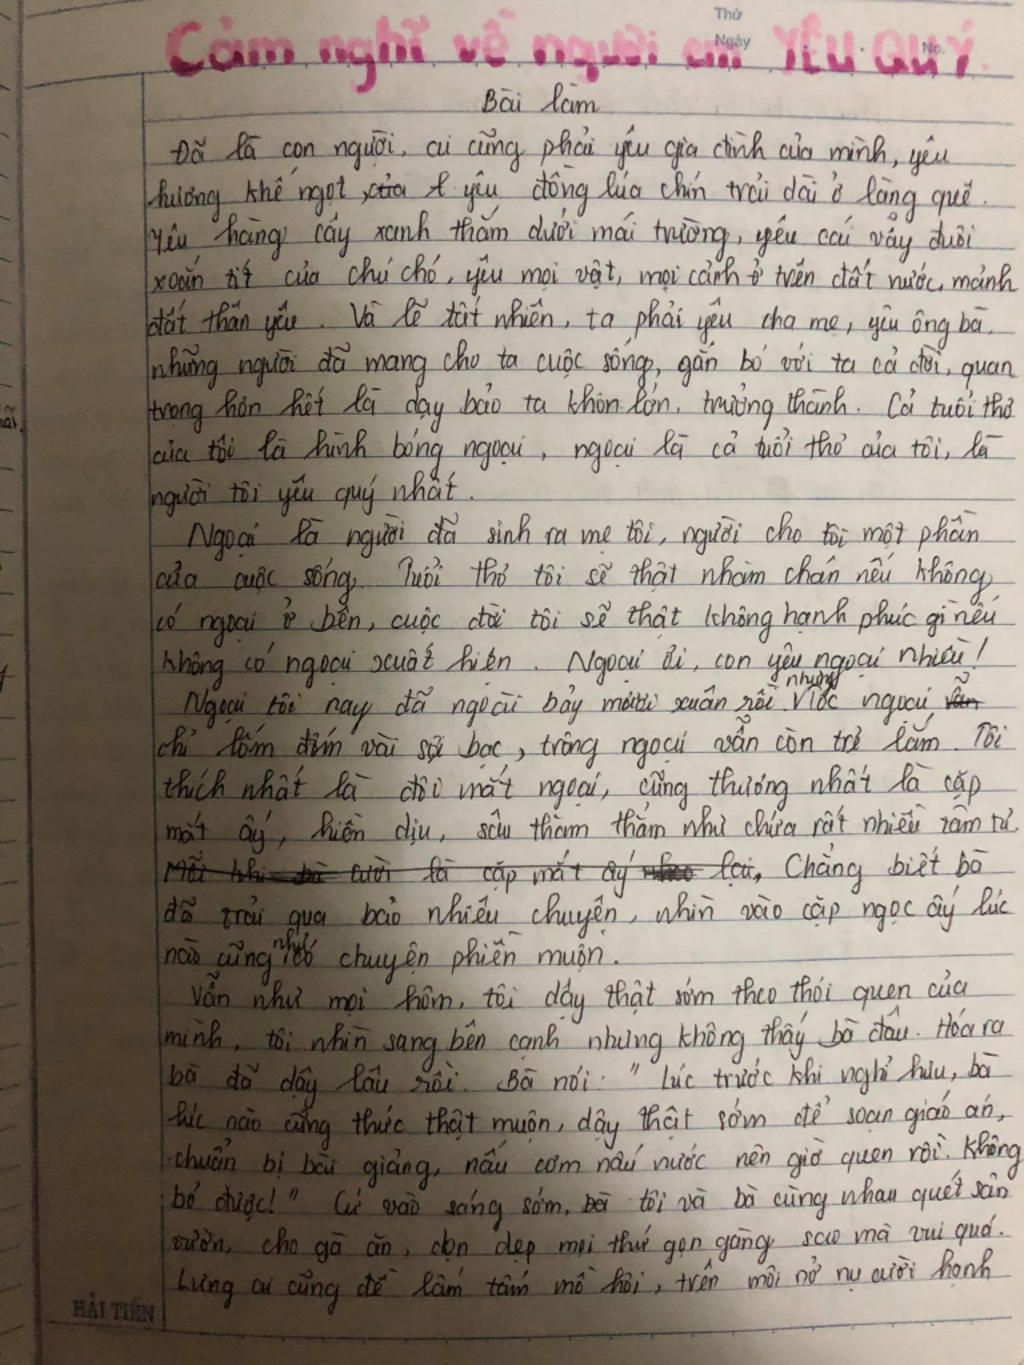 Thứ
Ngày
No.
Cảm nghĩ về người em YÊU QUÝ.
Bài làm
Đã là con người, ai cũng phải yêu gia đình của mình, yêu
hương khế ngọt, của yêu đồng lúa chín trải dài ở làng quê.
Yêu hàng cây xanh thắm dưới mái trường, yêu cái vẫy đuôi
xoắn tít của chú chó, yêu mọi vật, mọi cảnh ở trên đất nước, mảnh
đất thân yêu. Và lẽ tất nhiên, ta phải yêu cha mẹ, yêu ông bà,
những người đã mang cho ta cuộc sống, gắn bó với ta cả đời, quan
trọng hơn hết là dạy bảo ta khôn lớn, trưởng thành. Cả tuổi thơ
của tôi là hình bóng ngoại, ngoại là cả tuổi thơ của tôi, là
người tôi yêu quý nhất.
Ngoại là người đã sinh ra mẹ tôi, người cho tôi một phần
của cuộc sống. Tuổi thơ tôi sẽ thật nhàm chán nếu không
có ngoại ở bên, cuộc đời tôi sẽ thật không hạnh phúc gì nếu
không có ngoại xuất hiện. Ngoại ơi, con yêu ngoại nhiều!
Ngoại tôi nay đã ngoài bảy mươi xuân rồi nhưng tóc ngoại vẫn
chỉ lốm đốm vài sợi bạc, trông ngoại vẫn còn trẻ lắm. Tôi
thích nhất là đôi mắt ngoại, cũng thương nhất là cặp
mắt ấy, hiền dịu, sâu thăm thẳm như chứa rất nhiều tâm tư.
Mỗi khi bà cười là cặp mắt ấy nheo lại, Chẳng biết bà
đã trải qua bao nhiêu chuyện, nhìn vào cặp ngọc ấy lúc
nào cũng như có chuyện phiền muộn.
Vẫn như mọi hôm, tôi dậy thật sớm theo thói quen của
mình, tôi nhìn sang bên cạnh nhưng không thấy bà đâu. Hóa ra
bà đã dậy lâu rồi. Bà nói: " Lúc trước khi nghỉ hưu, bà
lúc nào cũng thức thật muộn, dậy thật sớm để soạn giáo án,
chuẩn bị bài giảng, nấu cơm nấu nước nên giờ quen rồi. Không
bỏ được! " Cứ vào sáng sớm, bà tôi và bà cùng nhau quét sân
vườn, cho gà ăn, dọn dẹp mọi thứ gọn gàng sao mà vui quá.
Lưng ai cũng đề lấm tấm mồ hôi, trên môi nở nụ cười hạnh
HẢI TIẾN